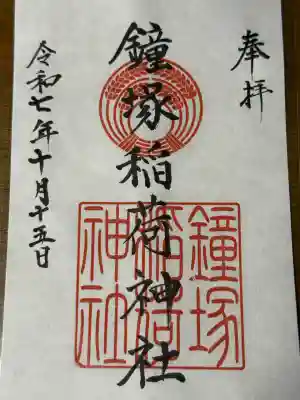 奉拝
鐘塚稲荷神社
令和七年十月十五日
鐘塚
稲荷
神社